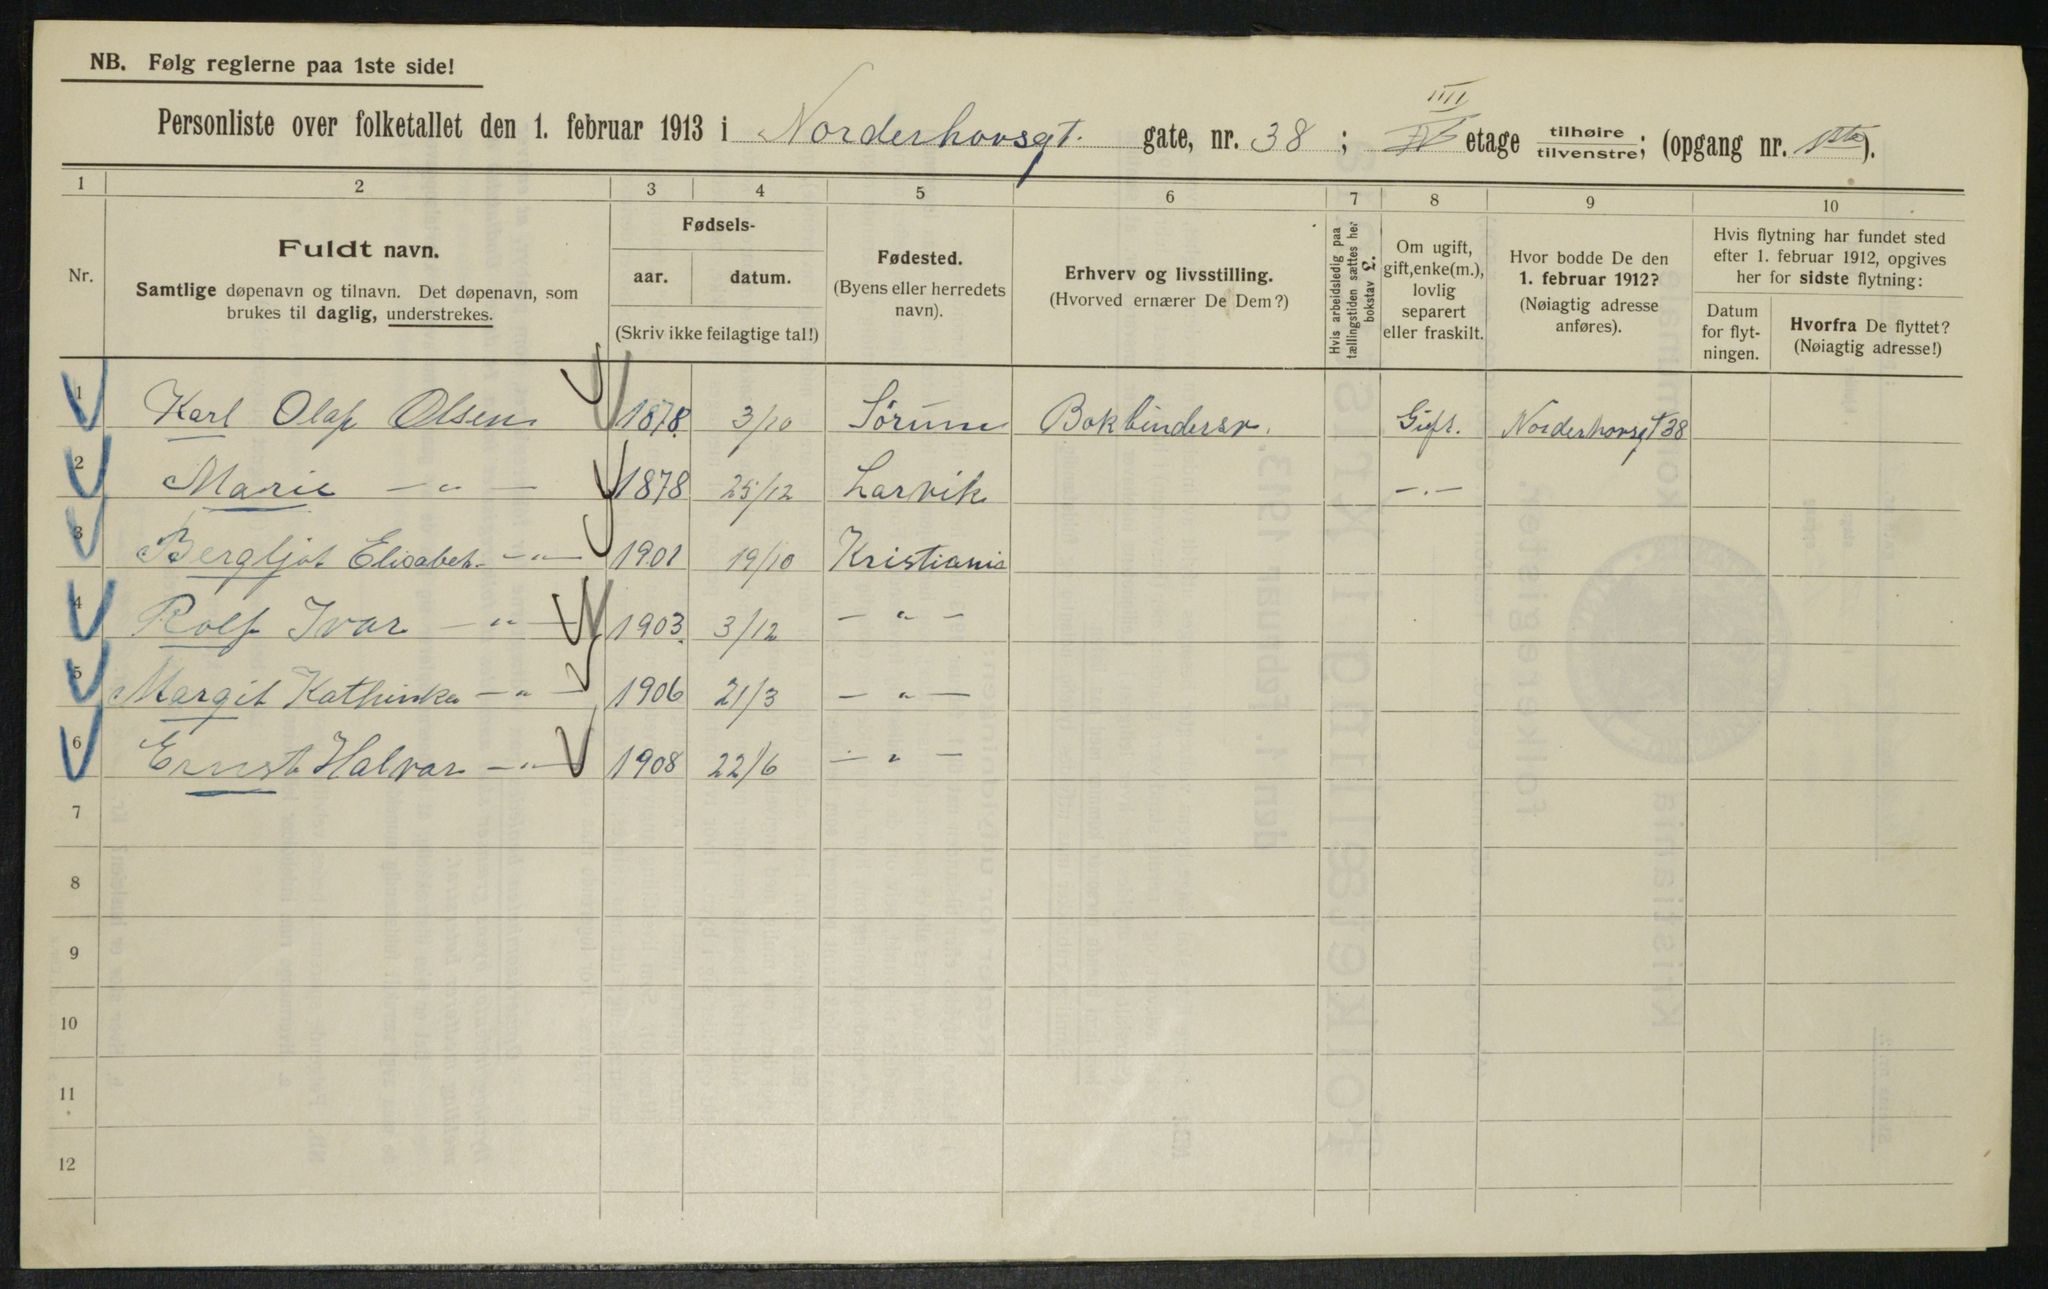 NB. Følg reglerne paa 1ste side!
Personliste over folketallet den 1. februar 1913 i Norderhovsgt. gate, nr. 38 ; IIII etage tilhøire/tilvenstre; (opgang nr. 1ste).
1 2 3 4 5 6 7 8 9 10
Nr.
Fuldt navn.
Samtlige døpenavn og tilnavn. Det døpenavn, som
brukes til daglig, understrekes.
Fødsels-
aar. datum.
(Skriv ikke feilagtige tal!)
Fødested.
(Byens eller herredets
navn).
Erhverv og livsstilling.
(Hvorved ernærer De Dem?)
Hvis arbeidsledig paa
tællingstiden sættes her
bokstav L.
Om ugift,
gift, enke(m.),
lovlig
separert
eller fraskilt.
Hvor bodde De den
1. februar 1912?
(Nøiagtig adresse
anføres).
Hvis flytning har fundet sted
efter 1. februar 1912, opgives
her for sidste flytning:
Datum
for flyt-
ningen.
Hvorfra De flyttet?
(Nøiagtig adresse!)
1 Karl Olaf Olsen 1878 3/10 Sørum Bokbindersv. Gift. Norderhovsgt 38
2 Marie — " — 1878 25/12 Larvik — " —
3 Bergljot Elisabet — " — 1901 19/10 Kristiania
4 Rolf Ivar — " — 1903 3/12 — " —
5 Margit Kathinka — " — 1906 21/3 — " —
6 Ernst Halvar — " — 1908 22/6 — " —
7
8
9
10
11
12